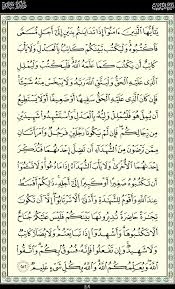 يَٰٓأَيُّهَا ٱلَّذِينَ ءَامَنُوٓاْ إِذَا تَدَايَنتُم بِدَيْنٍ إِلَىٰٓ أَجَلٍ مُّسَمًّى
فَٱكْتُبُوهُ ۚ وَلْيَكْتُب بَّيْنَكُمْ كَاتِبٌۢ بِٱلْعَدْلِ ۚ وَلَا يَأْبَ
كَاتِبٌ أَن يَكْتُبَ كَمَا عَلَّمَهُ ٱللَّهُ ۚ فَلْيَكْتُبْ وَلْيُمْلِلِ
ٱلَّذِى عَلَيْهِ ٱلْحَقُّ وَلْيَتَّقِ ٱللَّهَ رَبَّهُۥ وَلَا يَبْخَسْ مِنْهُ شَيْـًٔا ۚ
فَإِن كَانَ ٱلَّذِى عَلَيْهِ ٱلْحَقُّ سَفِيهًا أَوْ ضَعِيفًا أَوْ لَا يَسْتَطِيعُ
أَن يُمِلَّ هُوَ فَلْيُمْلِلْ وَلِيُّهُۥ بِٱلْعَدْلِ ۚ وَٱسْتَشْهِدُواْ شَهِيدَيْنِ
مِن رِّجَالِكُمْ ۖ فَإِن لَّمْ يَكُونَا رَجُلَيْنِ فَرَجُلٌ وَٱمْرَأَتَانِ
مِمَّن تَرْضَوْنَ مِنَ ٱلشُّهَدَآءِ أَن تَضِلَّ إِحْدَىٰهُمَا فَتُذَكِّرَ
إِحْدَىٰهُمَا ٱلْأُخْرَىٰ ۚ وَلَا يَأْبَ ٱلشُّهَدَآءُ إِذَا مَا دُعُواْ ۚ وَلَا تَسْـَٔمُوٓاْ
أَن تَكْتُبُوهُ صَغِيرًا أَوْ كَبِيرًا إِلَىٰٓ أَجَلِهِۦ ۚ ذَٰلِكُمْ أَقْسَطُ
عِندَ ٱللَّهِ وَأَقْوَمُ لِلشَّهَٰدَةِ وَأَدْنَىٰٓ أَلَّا تَرْتَابُوٓاْ ۖ إِلَّآ أَن تَكُونَ
تِجَٰرَةً حَاضِرَةً تُدِيرُونَهَا بَيْنَكُمْ فَلَيْسَ عَلَيْكُمْ جُنَاحٌ
أَلَّا تَكْتُبُوهَا ۗ وَأَشْهِدُوٓاْ إِذَا تَبَايَعْتُمْ ۚ وَلَا يُضَآرَّ كَاتِبٌ
وَلَا شَهِيدٌ ۚ وَإِن تَفْعَلُواْ فَإِنَّهُۥ فُسُوقٌۢ بِكُمْ ۗ وَٱتَّقُواْ
ٱللَّهَ ۖ وَيُعَلِّمُكُمُ ٱللَّهُ ۗ وَٱللَّهُ بِكُلِّ شَىْءٍ عَلِيمٌ ٢٨٢